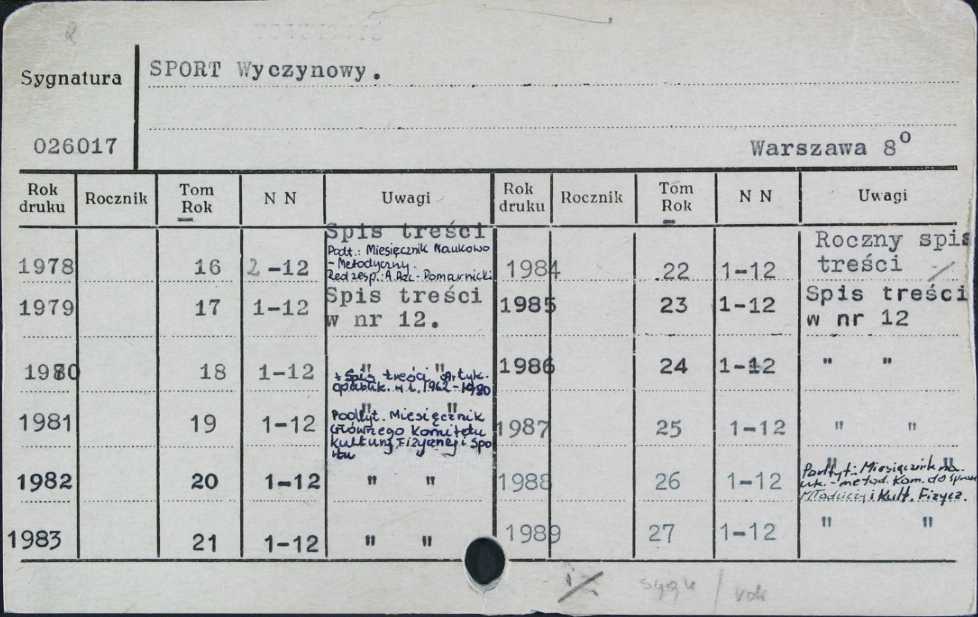 Sygnatura
SPORT Wyczynowy.
026017
Warszawa 8o
Rok druku Rocznik Tom Rok N N Uwagi Rok druku Rocznik Tom Rok N N Uwagi
Spis treści
1978 16 2-12 Podt.: Miesięcznik Naukowo
- Metodyczny.
Red. zesp.: A. Pac-Pomarnicki
1979 17 1-12 Spis treści
w nr 12.
1980 18 1-12 " "
+ Spis treści Artyk.
opublik. w l. 1962-1980
1981 19 1-12 " "
Podtyt. Miesięcznik
Głównego Komitetu
Kultury Fizycznej i Spo
rtu
1982 20 1-12 " "
1983 21 1-12 " "
Roczny spis
1984 22 1-12 treści
1985 23 1-12 Spis treści
w nr 12
1986 24 1-12 " "
1987 25 1-12 " "
1988 26 1-12 " "
Podtyt.: Miesięcznik na
uk.-metod. Kom. do spraw
Młodzieży i Kult. Fizycz.
1989 27 1-12 " "
rok